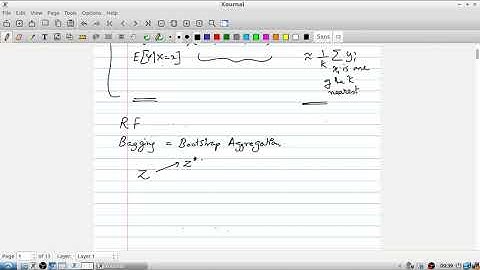 Xournal
File Edit View Journal Tools Plugins Help
Sans 12
E[Y|X=x] ≈ 1/k ∑ yi
xi is one
of the k
nearest
RF
Bagging = Bootstrap Aggregation
Z → Z*
Page of 11 Layer: Layer 1
09:39